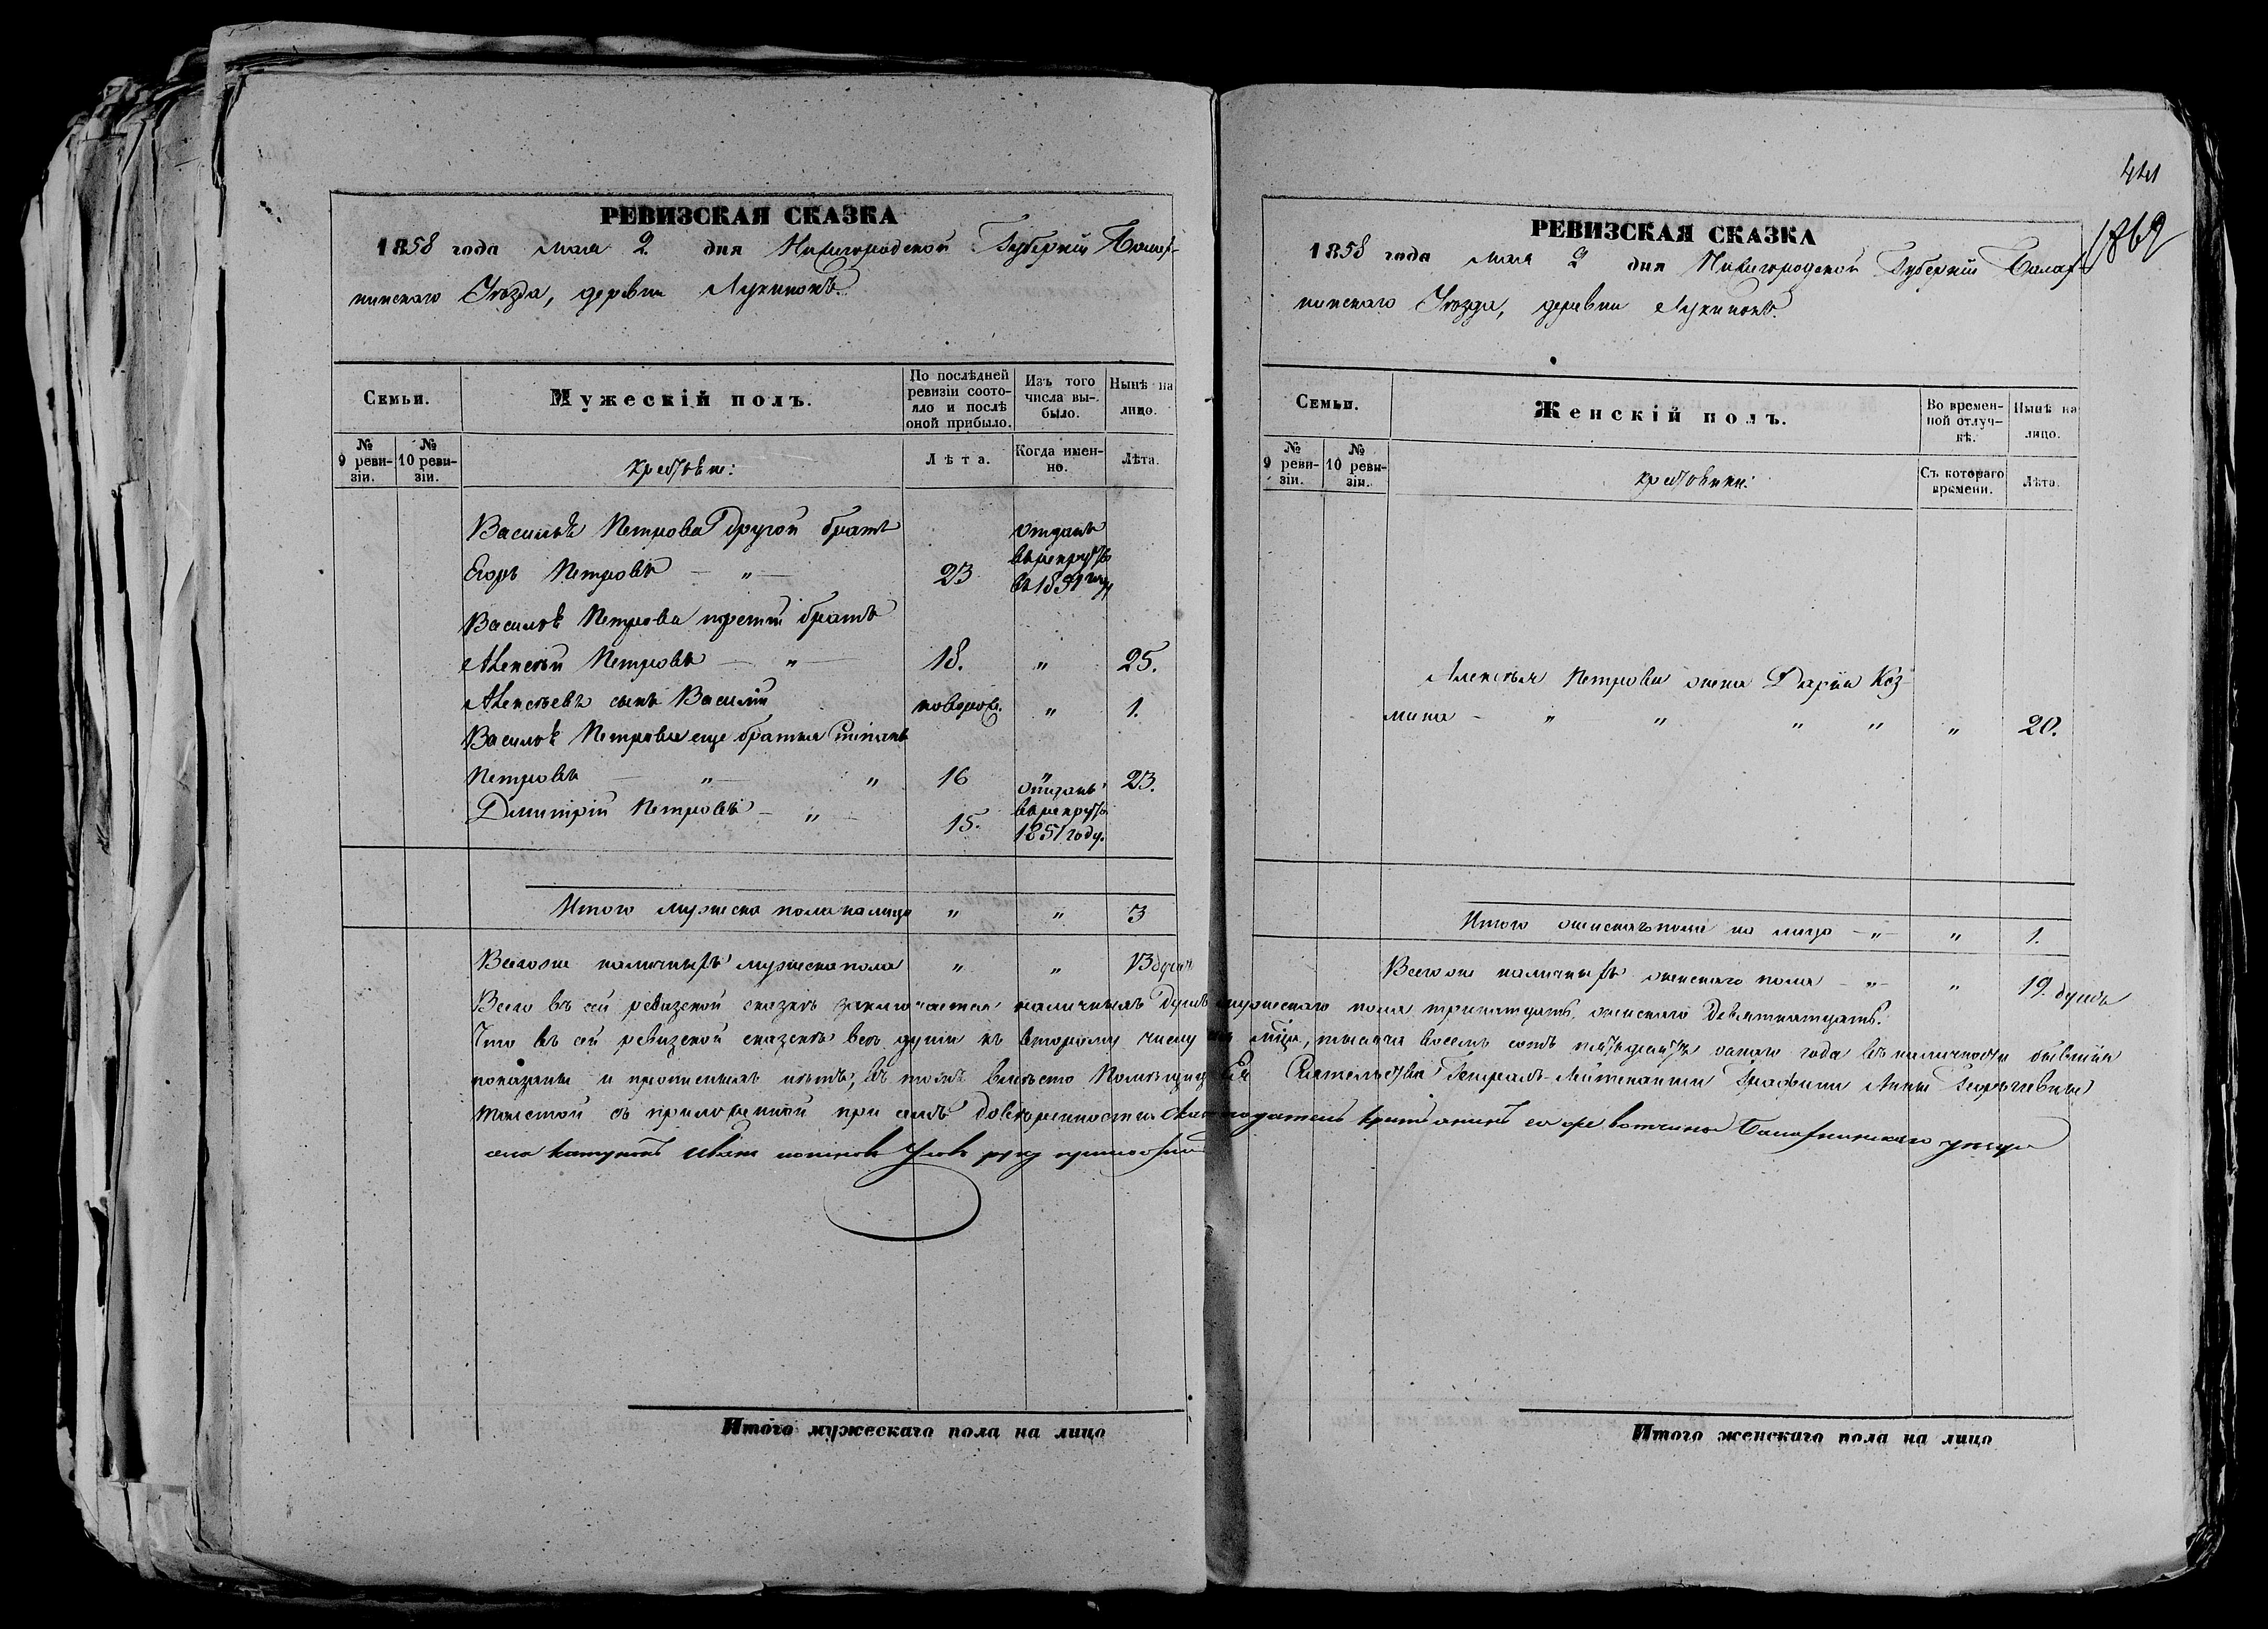 РЕВИЗСКАЯ СКАЗКА
1858 года мая 2 дня Нижегородской Губерніи Балах-
нинскаго Уѣзда, деревни Лукинокъ.
Семьи.
Мужескій полъ.
По послѣдней ревизіи состо-яло и послѣ оной прибыло.
Изъ того числа вы-было.
Нынѣ на лицо.
№ 9 реви-зіи.
№ 10 реви-зіи.
крестьяне:
Лѣта.
Когда имен-но.
Лѣта.
Василья Петрова другой братъ
Егоръ Петровъ — " — 23 отданъ въ рекруты въ 1851 году
Василья Петрова третій братъ
Алексѣй Петровъ — " — 18. " 25.
Алексѣевъ сынъ Василій новорож. " 1.
Василья Петрова еще братья Степанъ
Петровъ — " — " 16 " 23.
Дмитрій Петровъ — " — 15. отданъ въ рекруты 1851 году.
Итого мужеска пола на лицо " " 3
Всего же наличныхъ мужеска пола " " 13 душъ
РЕВИЗСКАЯ СКАЗКА
441
1869
1858 года мая 2 дня Нижегородской Губерніи Балах-
нинскаго Уѣзда, деревни Лукинокъ.
Семьи.
Женскій полъ.
Во времен-ной отлуч-кѣ.
Нынѣ на лицо.
№ 9 реви-зіи.
№ 10 реви-зіи.
крестьянки:
Съ котораго времени.
Лѣта.
Алексѣя Петрова жена Дарья Коз-
мина — " " " " " 20.
Итого женскаго пола на лицо — " — " 1.
Всего же наличныхъ женскаго пола — " — " 19. душъ
Всего въ сей ревизской сказкѣ заключается наличныхъ душъ мужескаго пола тринатцать, женскаго девятнатцать.
Что въ сей ревизской сказкѣ всѣ души къ второму числу мѣсяца, тысяча восемь сотъ пятьдесятъ осьмого года въ наличности бывшія
показаны и прописныхъ нѣтъ; въ томъ вмѣсто Помѣщицы Ея Сіятельства Генералъ-Лейтенантши Графини Анны Георгіевны
Толстой съ приложенной при семъ довѣренности крестьянинъ ея же вотчины Балахнинскаго уѣзда
села Катунокъ Иванъ руку приложилъ
Итого мужескаго пола на лицо
Итого женскаго пола на лицо